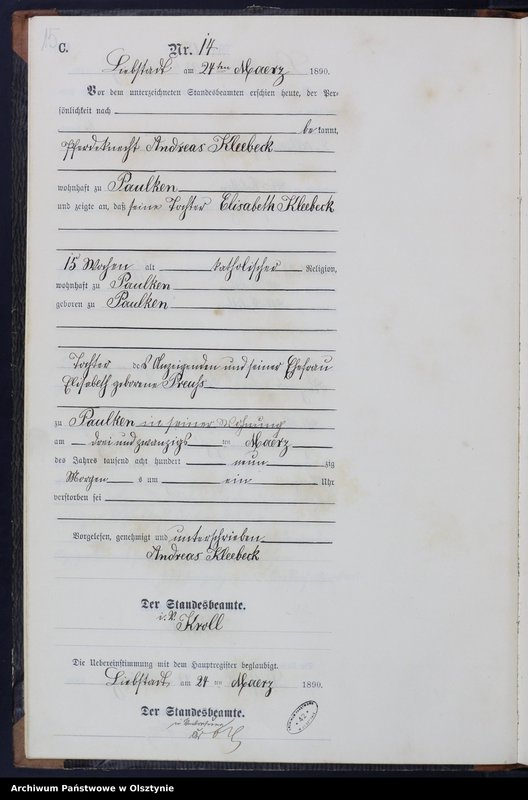 15
C.
Nr. 14
Liebstadt am 24ten Maerz 1890.
Vor dem unterzeichneten Standesbeamten erschien heute, der Per-
sönlichkeit nach
be kannt,
Pferdeknecht Andreas Kleebeck
wohnhaft zu Paulken
und zeigte an, daß seine Tochter Elisabeth Kleebeck
15 Wochen alt katholischer Religion,
wohnhaft zu Paulken
geboren zu Paulken
Tochter des Anzeigenden und seiner Ehefrau
Elisabeth geborene Preuß
zu Paulken in seiner Wohnung
am drei und zwanzigs ten Maerz
des Jahres tausend acht hundert neun zig
Morgen s um ein Uhr
verstorben sei
Vorgelesen, genehmigt und unterschrieben
Andreas Kleebeck
Der Standesbeamte.
i. V. Kroll
Die Uebereinstimmung mit dem Hauptregister beglaubigt.
Liebstadt am 24 ten Maerz 1890.
Der Standesbeamte.
Archiwum Państwowe w Olsztynie